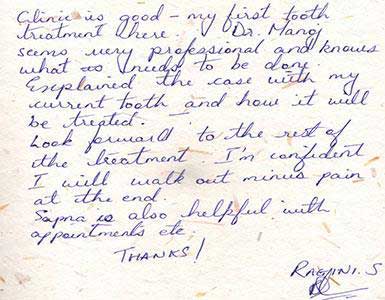 Clinic is good - my first tooth
treatment here. Dr. Manoj
seems very professional and knows
what is needs to be done.
Explained the case with my
current tooth and how it will
be treated.
Look forward to the rest of
the treatment. I'm confident
I will walk out minus pain
at the end.
Sapna is also helpful with
appointments etc.
THANKS!
RAGINI. S